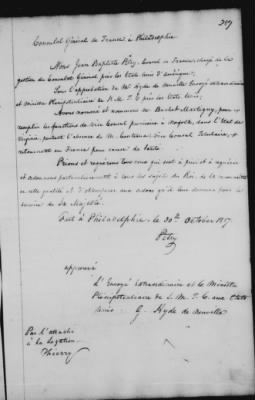 Consulat Général de France à Philadelphie
Nous Jean Baptiste Petry, Consul de France, chargé de la
gestion du Consulat Général près les Etats Unis d'Amérique;
Sous l'approbation de Mr Hyde de Neuville Envoyé extraordinaire
et Ministre Plenipotentiaire de S. M. T. C. près les Etats Unis,
Avons nommé et nommons Mr Martigny, pour
remplir les fonctions de Vice Consul provisoire à Norfolk, dans l'Etat de
Virginie, pendant l'absence de M. Vice Consul Titulaire,
retournant en France pour cause de santé.
Prions et requérons tous ceux qui sont à prier et à requérir
et ordonnons particulièrement à tous les sujets du Roi, de le reconnaitre
en cette qualité et d'obtempérer aux ordres qu'il leur donnera pour le
service de Sa Majesté.
Fait à Philadelphie, le 30th Octobre 1817
Petry
approuvé
L'Envoyé Extraordinaire et le Ministre
Plenipotentiaire de S. M. T. C. aux Etats
Unis G. Hyde de Neuville
Par l'attaché
à la légation.
Thierry